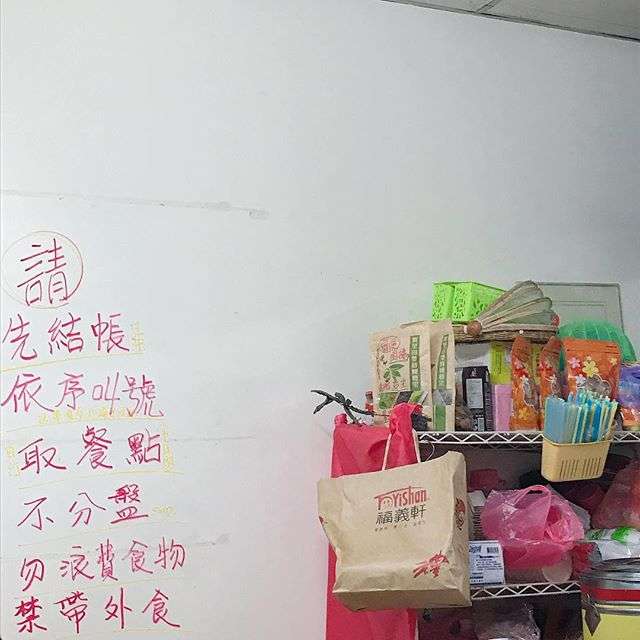 請
先結帳
依序叫號
取餐點
不分盤
勿浪費食物
禁帶外食
FuYishan
福義軒
禮